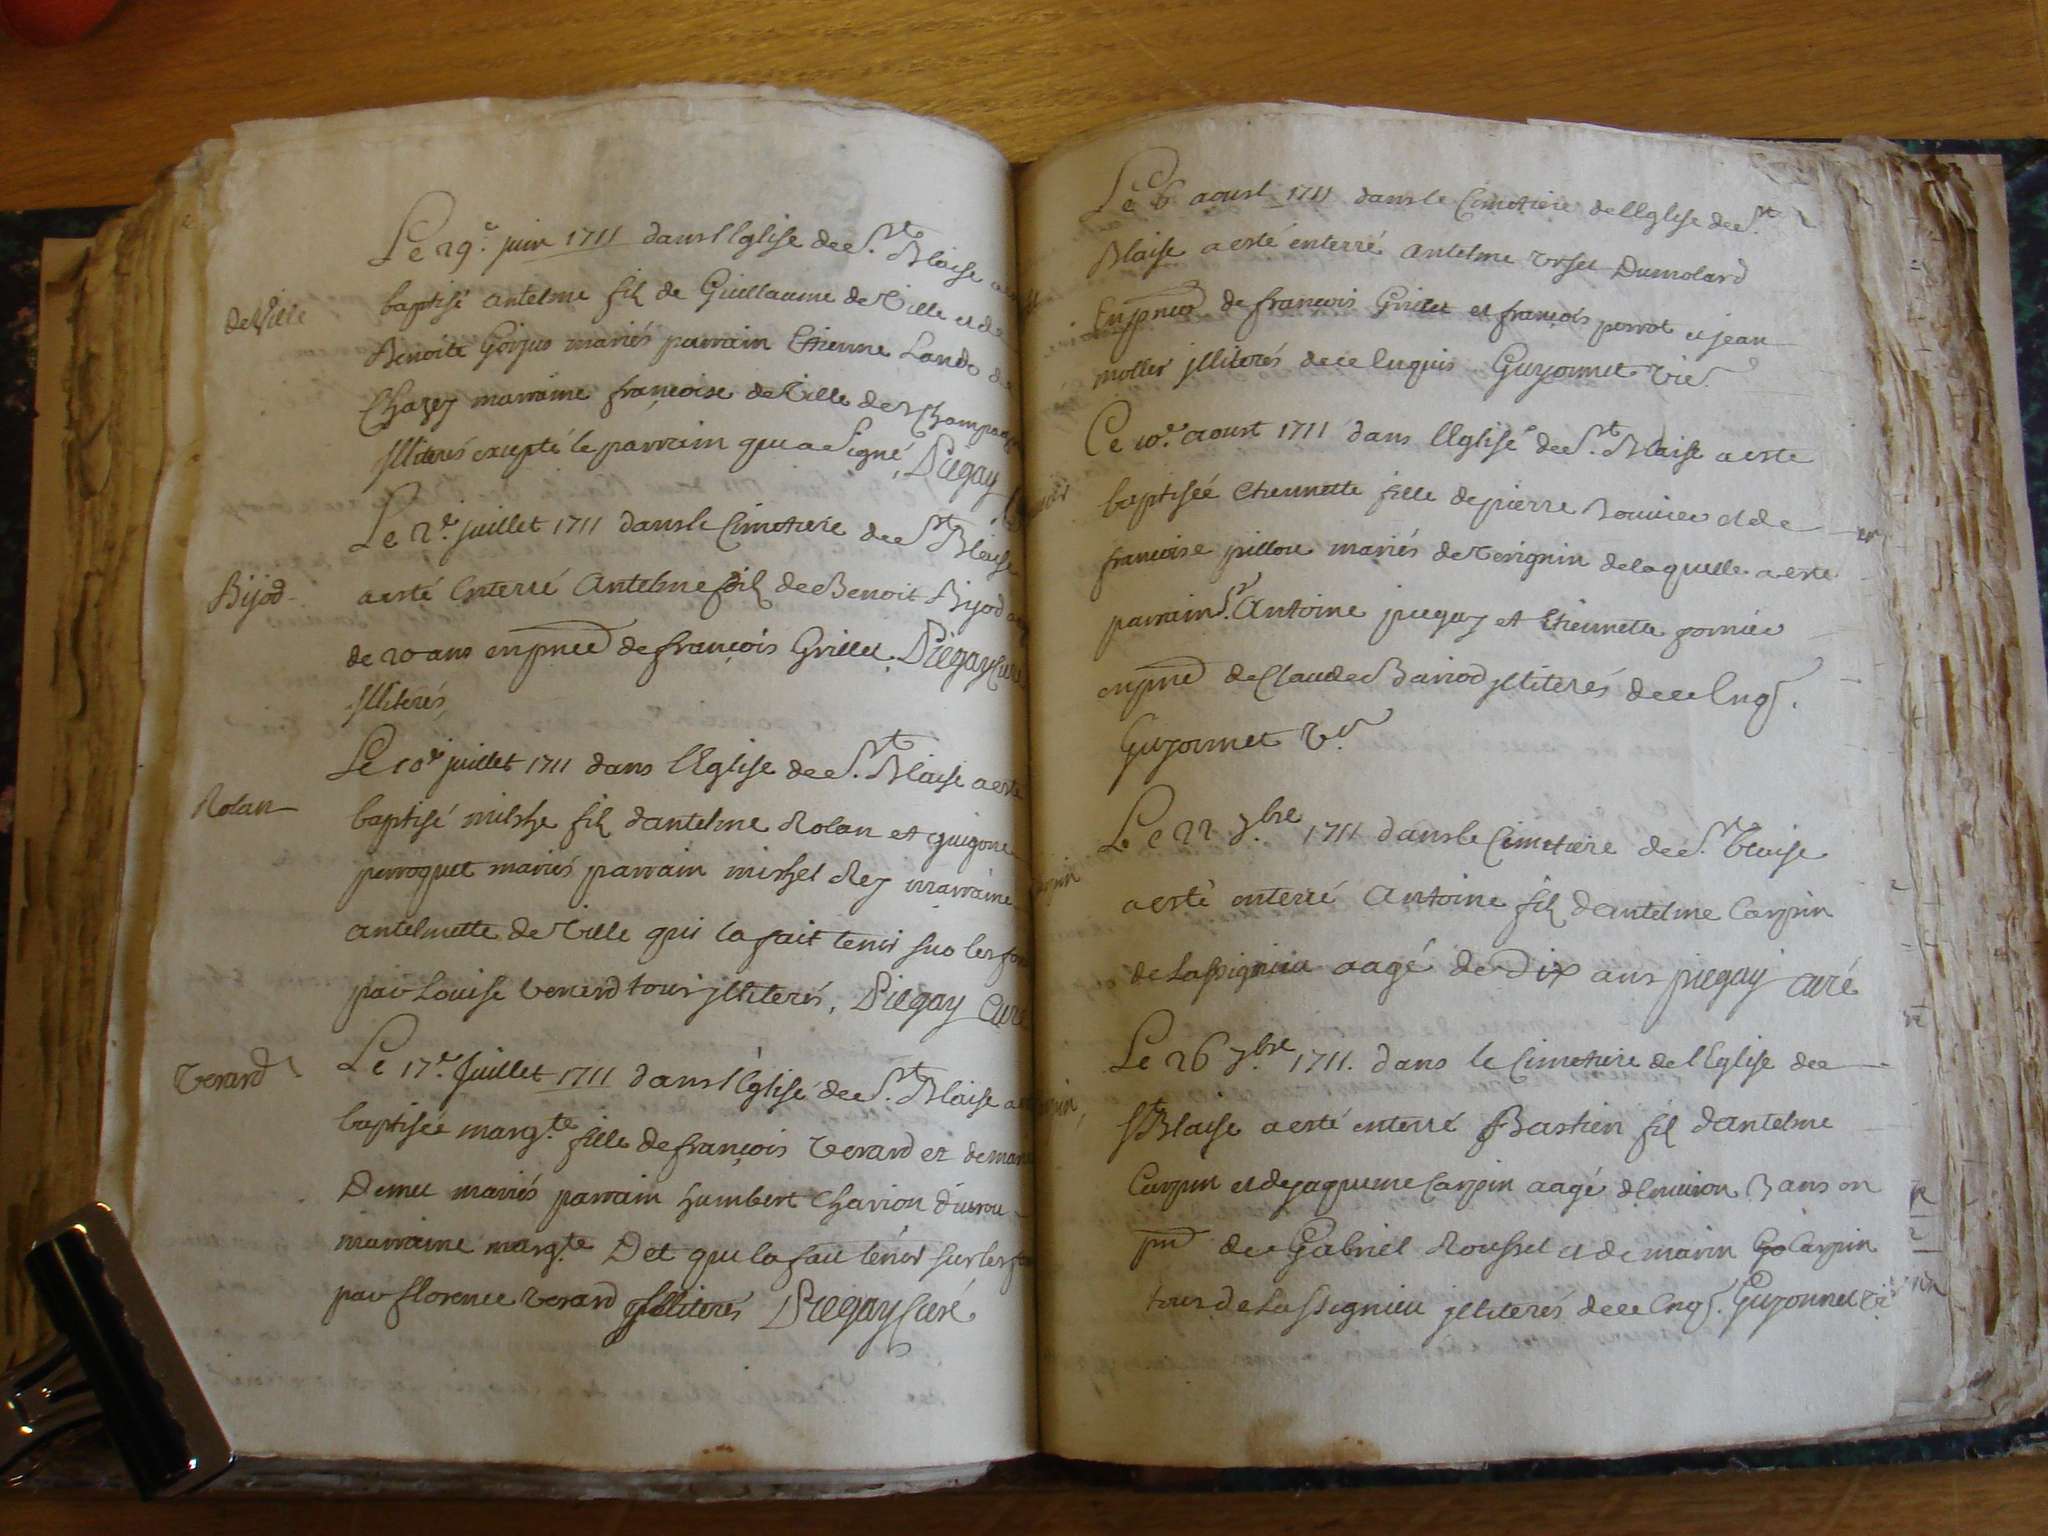 Le 29.e juin 1711 dans l'Eglise de St. Blaise a
DeVille
baptisé antelme fils de Guillaume de Ville et de
Benoite Gojus mariés parrain Etienne Lando de
Chazey marraine françoise de Ville de Champa
illiterés excepté le parrain qui a Signé, Piegay
Le 2.e juillet 1711 dans le Cimetiere de St Blaise
Bijod
a esté Enterré Antelme fils de Benoit Bijod
de 20 ans en pnce de françois Grillet. Piegay Curé
illiterés
Le 10.e juillet 1711 dans l'Eglise de St. Blaise a esté
Rolan
baptisé mishe fils d'antelme Rolan et guigone
perroquet mariés parrain mishel Rey marraine
antelmette de Ville qui la fait tenir sur les
par Louise Verard tous illiterés. Piegay Curé
Verard
Le 17.e Juillet 1711 dans l'Eglise de St. Blaise a
baptisée margte fille de françois Verard et de
Demet mariés parrain humbert Charion
marraine margte Det qui la fait tenir sur les
par florence Verard illiterés Piegay Curé
Le 6 aoust 1711 dans le Cimetiere de l'Eglise de St
Blaise a esté enterré antelme Dumolard
En pnce de françois Grillet et françois perrot et jean
mollier illiterés de ce Enquis Guyonnet Vic.
Le 10.e aoust 1711 dans l'Eglise de St. Blaise a esté
baptisée Etiennette fille de pierre Bouvier et de
françoise pillou mariés de Verignin de laquelle a esté
parrain Sr Antoine piegay et Etiennette gornier
en pnce de Claude Baviod illiterés de ce Enqs.
Guyonnet Vic
Le 22 7.bre 1711 dans le Cimetiere de St. Blaise
a esté enterré Antoine fils d'antelme Carpin
de Lassignieu aagé de Dix ans piegay curé
Le 26 7.bre 1711. dans le Cimetiere de l'Eglise de
St Blaise a esté enterré Bastien fils d'antelme
Carpin et de jaqueme Carpin aagé d'Environ 3 ans en
pnce de Gabriel Roussel et de marin Carpin
tous de Lassignieu illiterés de ce Enqs. Guyonnet Vic